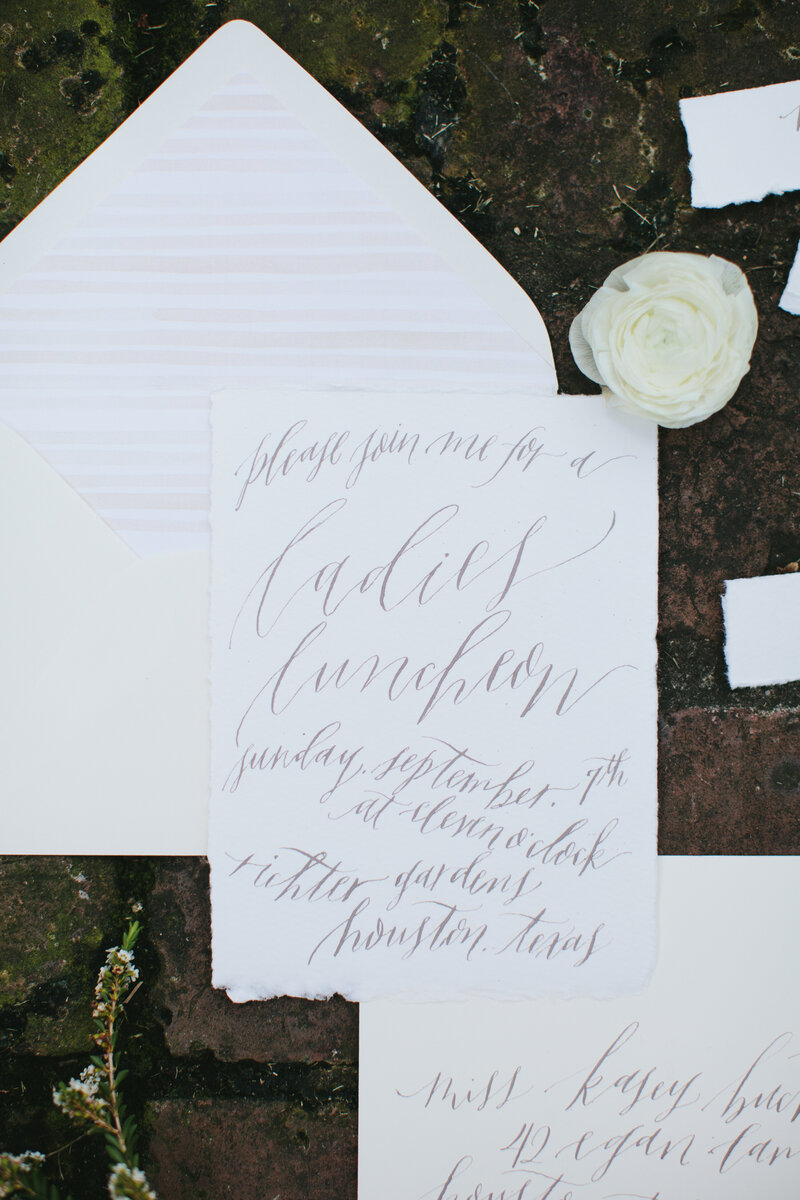 please join me for a
ladies
luncheon
sunday, september, 7th
at eleven o'clock
richter gardens
houston, texas
miss kasey
42 egan